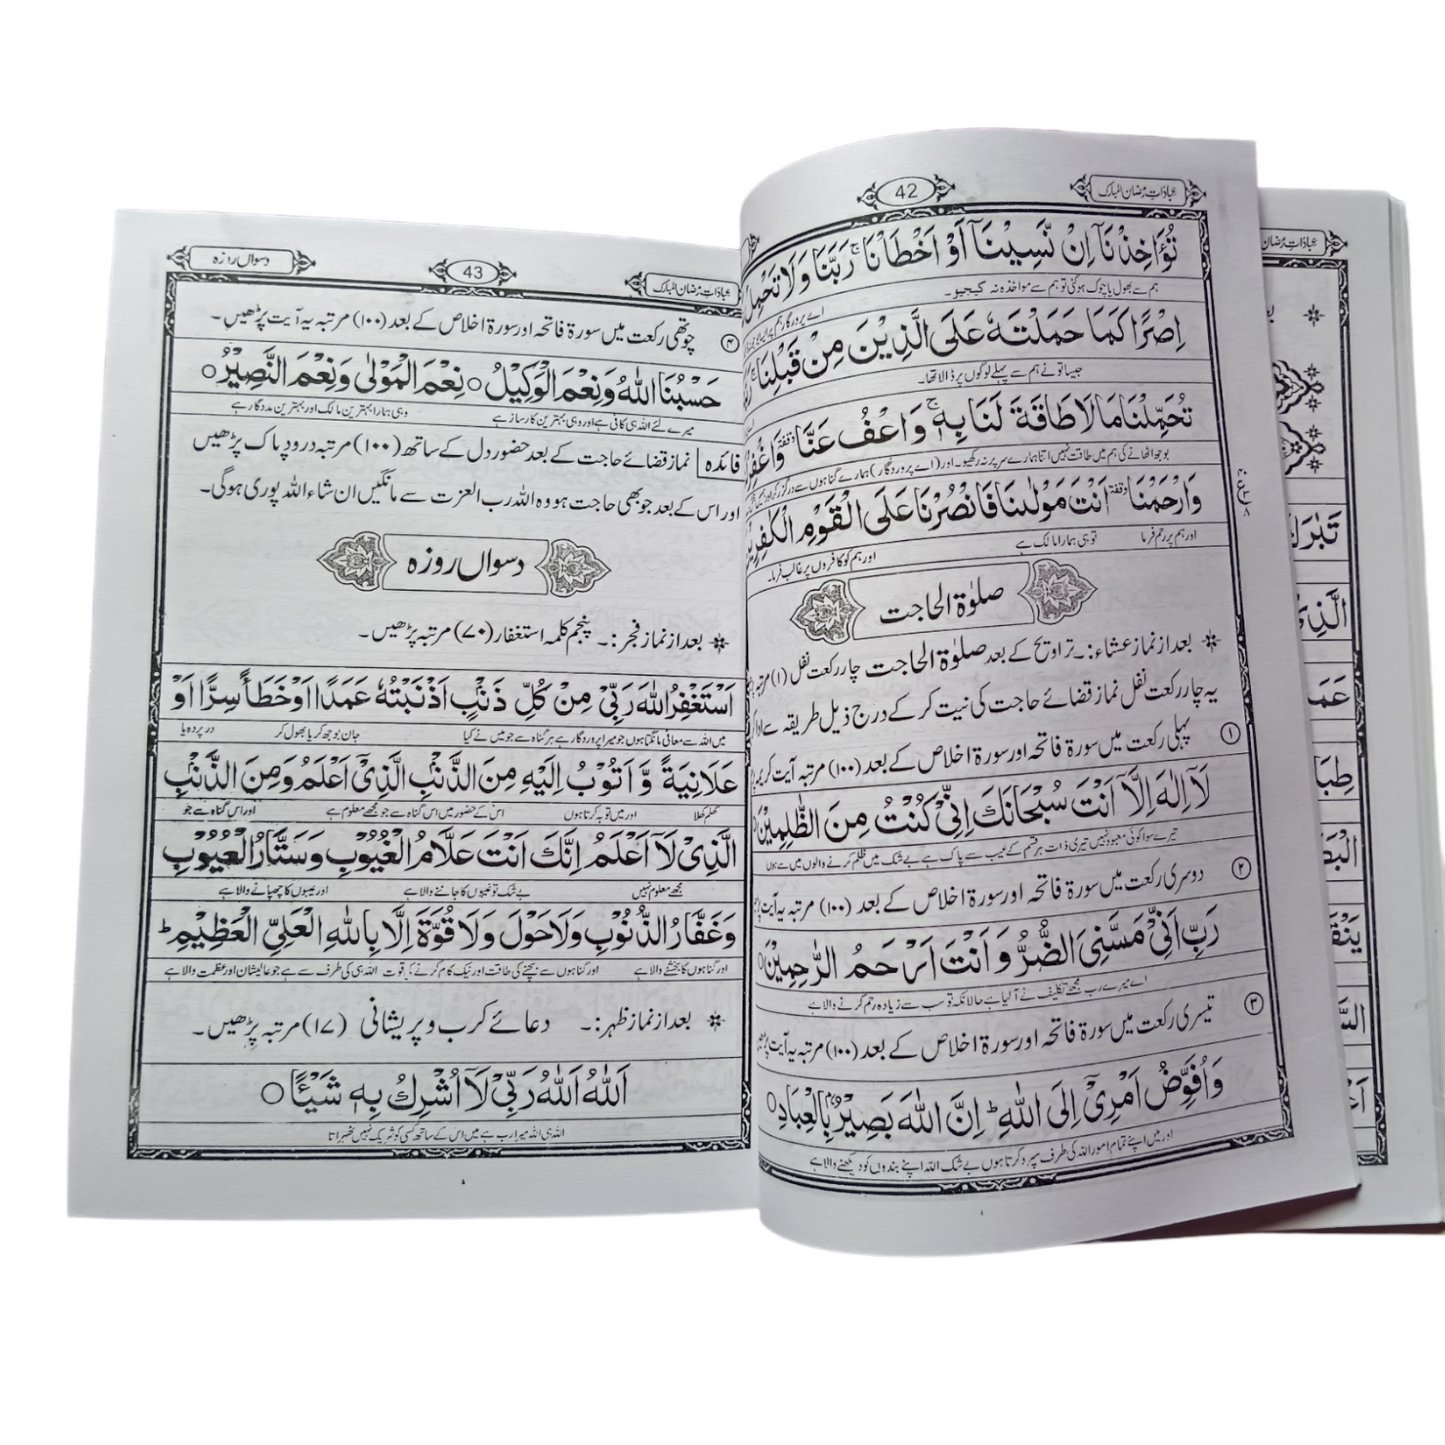 عبادات رمضان المبارک
42
تُؤَاخِذْنَآ اِنْ نَّسِيْنَآ اَوْ اَخْطَاْنَا ۚ رَبَّنَا وَلَا تَحْمِلْ
ہم سے بھول یا چوک ہو گئی تو ہم سے مواخذہ نہ کیجیو۔ اے پروردگار ہم پر
اِصْرًا كَمَا حَمَلْتَهٗ عَلَى الَّذِيْنَ مِنْ قَبْلِنَا ۚ
جیسا تو نے ہم سے پہلے لوگوں پر ڈالا تھا۔
تُحَمِّلْنَا مَا لَا طَاقَةَ لَنَا بِهٖ ۚ وَاعْفُ عَنَّا وقفة وَاغْفِرْ
بوجھ اٹھانے کی ہم میں طاقت نہیں اتنا ہمارے سر پر نہ رکھیو۔ اور (اے پروردگار) ہمارے گناہوں سے درگزر کر اور
وَارْحَمْنَا وقفة اَنْتَ مَوْلٰىنَا فَانْصُرْنَا عَلَى الْقَوْمِ الْكٰفِرِيْنَ
اور ہم پر رحم فرما تو ہی ہمارا مالک ہے اور ہم کو کافروں پر غالب فرما۔
صلوٰۃ الحاجت
بعد از نماز عشاء:۔ تراویح کے بعد صلوٰۃ الحاجت چار رکعت نفل (۱) مرتبہ
یہ چار رکعت نفل نماز قضائے حاجت کی نیت کر کے درج ذیل طریقہ سے ادا
۱ پہلی رکعت میں سورۃ فاتحہ اور سورۃ اخلاص کے بعد (۱۰۰) مرتبہ آیت کریمہ
لَآ اِلٰهَ اِلَّآ اَنْتَ سُبْحَانَكَ اِنِّيْ كُنْتُ مِنَ الظّٰلِمِيْنَ
تیرے سوا کوئی معبود نہیں تیری ذات ہر قسم کے عیب سے پاک ہے بے شک میں ظلم کرنے والوں میں سے ہوں
۲ دوسری رکعت میں سورۃ فاتحہ اور سورۃ اخلاص کے بعد (۱۰۰) مرتبہ یہ آیت
رَبِّ اَنِّيْ مَسَّنِيَ الضُّرُّ وَاَنْتَ اَرْحَمُ الرّٰحِمِيْنَ
اے میرے رب مجھے تکلیف نے آ لیا ہے حالانکہ تو سب سے زیادہ رحم کرنے والا ہے
۳ تیسری رکعت میں سورۃ فاتحہ اور سورۃ اخلاص کے بعد (۱۰۰) مرتبہ یہ آیت
وَاُفَوِّضُ اَمْرِيْٓ اِلَى اللّٰهِ ؕ اِنَّ اللّٰهَ بَصِيْرٌۢ بِالْعِبَادِ
اور میں اپنے تمام امور اللہ کی طرف سپرد کرتا ہوں بے شک اللہ اپنے بندوں کو دیکھنے والا ہے
عبادات رمضان المبارک
43
دسواں روزہ
۴ چوتھی رکعت میں سورۃ فاتحہ اور سورۃ اخلاص کے بعد (۱۰۰) مرتبہ یہ آیت پڑھیں۔
حَسْبُنَا اللّٰهُ وَنِعْمَ الْوَكِيْلُ ○ نِعْمَ الْمَوْلٰى وَنِعْمَ النَّصِيْرُ ○
میرے لئے اللہ ہی کافی ہے اور وہی بہترین کارساز ہے وہی ہمارا بہترین مالک اور بہترین مددگار ہے
فائدہ نماز قضائے حاجت کے بعد حضور دل کے ساتھ (۱۰۰) مرتبہ درود پاک پڑھیں
اور اس کے بعد جو بھی حاجت ہو وہ اللہ رب العزت سے مانگیں ان شاء اللہ پوری ہوگی۔
دسواں روزہ
بعد از نماز فجر:۔ پنجم کلمہ استغفار (۷۰) مرتبہ پڑھیں۔
اَسْتَغْفِرُ اللّٰهَ رَبِّيْ مِنْ كُلِّ ذَنْۢبٍ اَذْنَبْتُهٗ عَمَدًا اَوْ خَطَأً سِرًّا اَوْ
میں اللہ سے معافی مانگتا ہوں جو میرا پروردگار ہے ہر گناہ سے جو میں نے کیا جان بوجھ کر یا بھول کر در پردہ یا
عَلَانِيَةً وَّاَتُوْبُ اِلَيْهِ مِنَ الذَّنْۢبِ الَّذِيْٓ اَعْلَمُ وَمِنَ الذَّنْۢبِ
کھلم کھلا اور میں توبہ کرتا ہوں اس کے حضور میں اس گناہ سے جو مجھے معلوم ہے اور اس گناہ سے جو
الَّذِيْ لَآ اَعْلَمُ اِنَّكَ اَنْتَ عَلَّامُ الْغُيُوْبِ وَسَتَّارُ الْعُيُوْبِ
مجھے معلوم نہیں بے شک تو غیبوں کا جاننے والا ہے اور عیبوں کا چھپانے والا ہے
وَغَفَّارُ الذُّنُوْبِ وَلَا حَوْلَ وَلَا قُوَّةَ اِلَّا بِاللّٰهِ الْعَلِيِّ الْعَظِيْمِ ؕ
اور گناہوں کا بخشنے والا ہے اور گناہوں سے بچنے کی طاقت اور نیک کام کرنے کی قوت اللہ ہی کی طرف سے ہے جو عالیشان اور عظمت والا ہے
بعد از نماز ظہر:۔ دعائے کرب و پریشانی (۱۷) مرتبہ پڑھیں۔
اَللّٰهُ اَللّٰهُ رَبِّيْ لَآ اُشْرِكُ بِهٖ شَيْئًا ○
اللہ ہی اللہ میرا رب ہے میں اس کے ساتھ کسی کو شریک نہیں ٹھہراتا